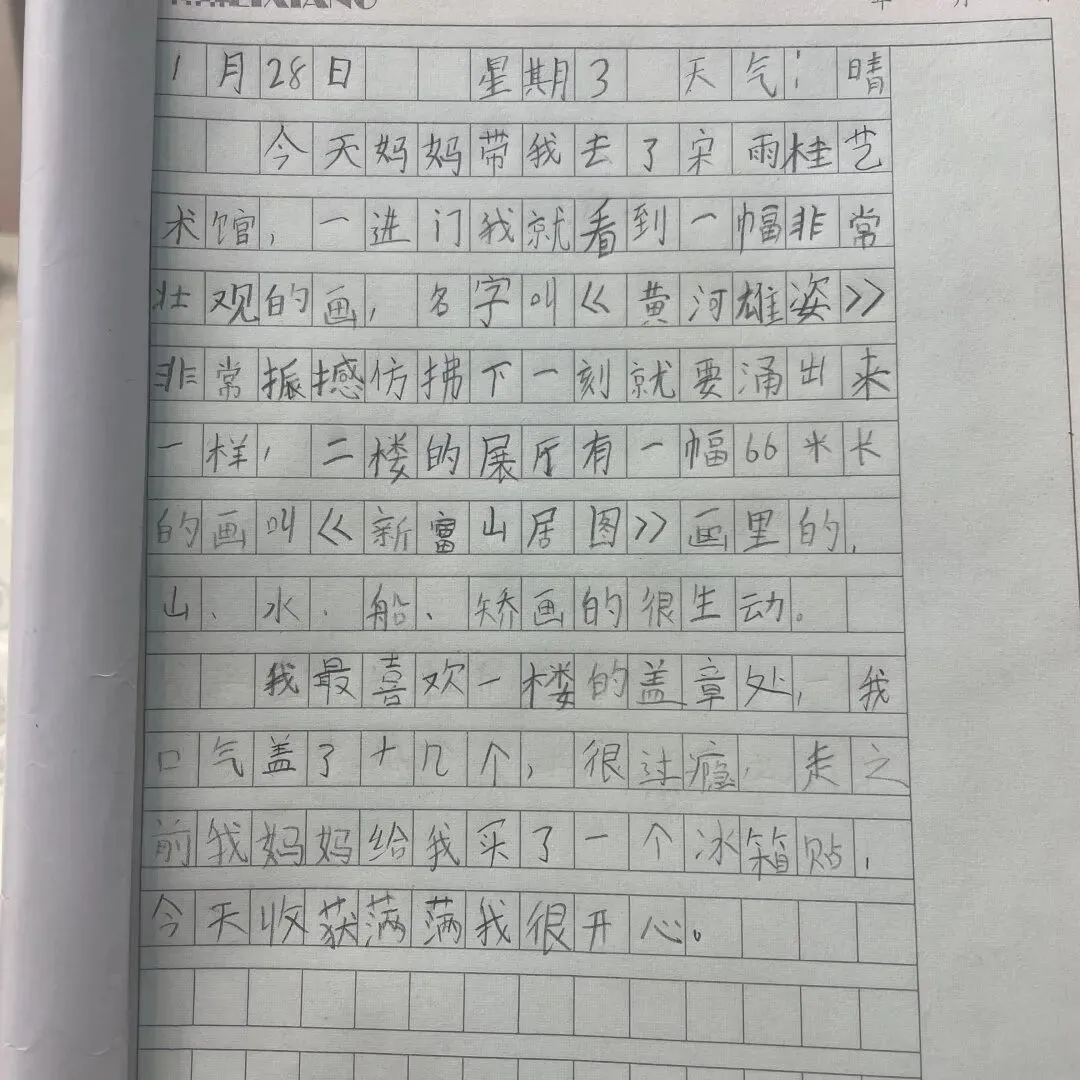 1月28日 星期3 天气：晴
今天妈妈带我去了宋雨桂艺
术馆，一进门我就看到一幅非常
壮观的画，名字叫《黄河雄姿》
非常振撼仿拂下一刻就要涌出来
一样，二楼的展厅有一幅66米长
的画叫《新富山居图》画里的，
山、水、船、矫画的很生动。
我最喜欢一楼的盖章处，我
口气盖了十几个，很过瘾，走之
前我妈妈给我买了一个冰箱贴，
今天收获满满我很开心。